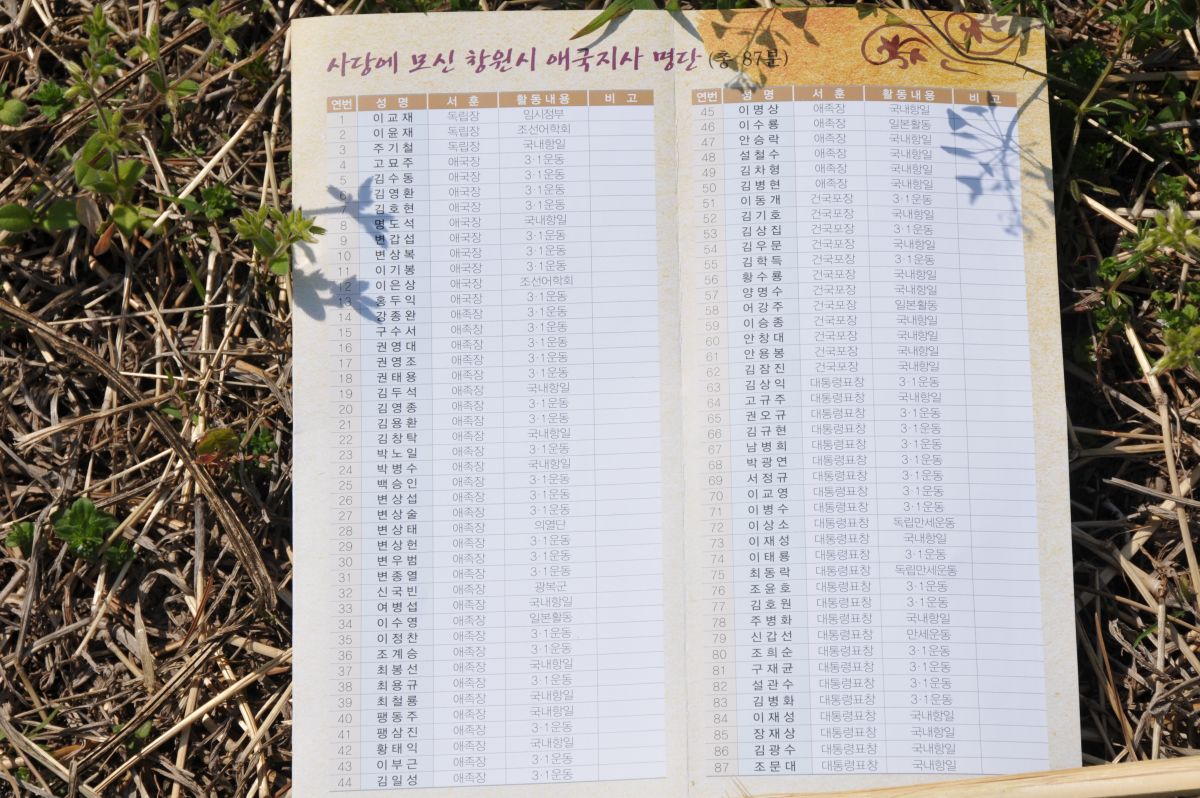 사당에 모신 창원시 애국지사 명단 (총 87분)
연번 성 명 서 훈 활동내용 비 고
1 이교재 독립장 임시정부
2 이윤재 독립장 조선어학회
3 주기철 독립장 국내항일
4 고묘주 애국장 3·1운동
5 김수동 애국장 3·1운동
6 김영환 애국장 3·1운동
7 김호현 애국장 3·1운동
8 명도석 애국장 국내항일
9 변갑섭 애국장 3·1운동
10 변상복 애국장 3·1운동
11 이기봉 애국장 3·1운동
12 이은상 애국장 조선어학회
13 홍두익 애국장 3·1운동
14 강종완 애족장 3·1운동
15 구수서 애족장 3·1운동
16 권영대 애족장 3·1운동
17 권영조 애족장 3·1운동
18 권태용 애족장 3·1운동
19 김두석 애족장 국내항일
20 김영종 애족장 3·1운동
21 김용환 애족장 3·1운동
22 김창탁 애족장 국내항일
23 박노일 애족장 3·1운동
24 박병수 애족장 국내항일
25 백승인 애족장 3·1운동
26 변상섭 애족장 3·1운동
27 변상술 애족장 3·1운동
28 변상태 애족장 의열단
29 변상헌 애족장 3·1운동
30 변우범 애족장 3·1운동
31 변종열 애족장 3·1운동
32 신국빈 애족장 광복군
33 여병섭 애족장 국내항일
34 이수영 애족장 일본활동
35 이정찬 애족장 3·1운동
36 조계승 애족장 3·1운동
37 최봉선 애족장 국내항일
38 최용규 애족장 3·1운동
39 최철룡 애족장 국내항일
40 팽동주 애족장 국내항일
41 팽삼진 애족장 3·1운동
42 황태익 애족장 국내항일
43 이부근 애족장 3·1운동
44 김일성 애족장 3·1운동
연번 성 명 서 훈 활동내용 비 고
45 이명상 애족장 국내항일
46 이수룡 애족장 일본활동
47 안승락 애족장 국내항일
48 설철수 애족장 국내항일
49 김차형 애족장 국내항일
50 김병현 애족장 국내항일
51 이동개 건국포장 3·1운동
52 김기호 건국포장 국내항일
53 김상집 건국포장 3·1운동
54 김우문 건국포장 국내항일
55 김학득 건국포장 3·1운동
56 황수룡 건국포장 국내항일
57 양명수 건국포장 국내항일
58 어강주 건국포장 일본활동
59 이승종 건국포장 국내항일
60 안창대 건국포장 국내항일
61 안용봉 건국포장 국내항일
62 김잠진 건국포장 국내항일
63 김상익 대통령표창 3·1운동
64 고규주 대통령표창 국내항일
65 권오규 대통령표창 3·1운동
66 김규현 대통령표창 3·1운동
67 남병희 대통령표창 3·1운동
68 박광연 대통령표창 3·1운동
69 서정규 대통령표창 3·1운동
70 이교영 대통령표창 3·1운동
71 이병수 대통령표창 3·1운동
72 이상소 대통령표창 독립만세운동
73 이재성 대통령표창 국내항일
74 이태룡 대통령표창 3·1운동
75 최동락 대통령표창 독립만세운동
76 조윤호 대통령표창 3·1운동
77 김호원 대통령표창 3·1운동
78 주병화 대통령표창 국내항일
79 신갑선 대통령표창 만세운동
80 조희순 대통령표창 3·1운동
81 구재균 대통령표창 3·1운동
82 설관수 대통령표창 3·1운동
83 김병화 대통령표창 3·1운동
84 이재성 대통령표창 국내항일
85 장재상 대통령표창 국내항일
86 김광수 대통령표창 국내항일
87 조문대 대통령표창 국내항일